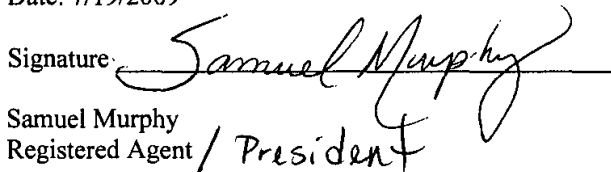 Date: 7/19/2009
Signature Samuel Murphy
Samuel Murphy
Registered Agent / President